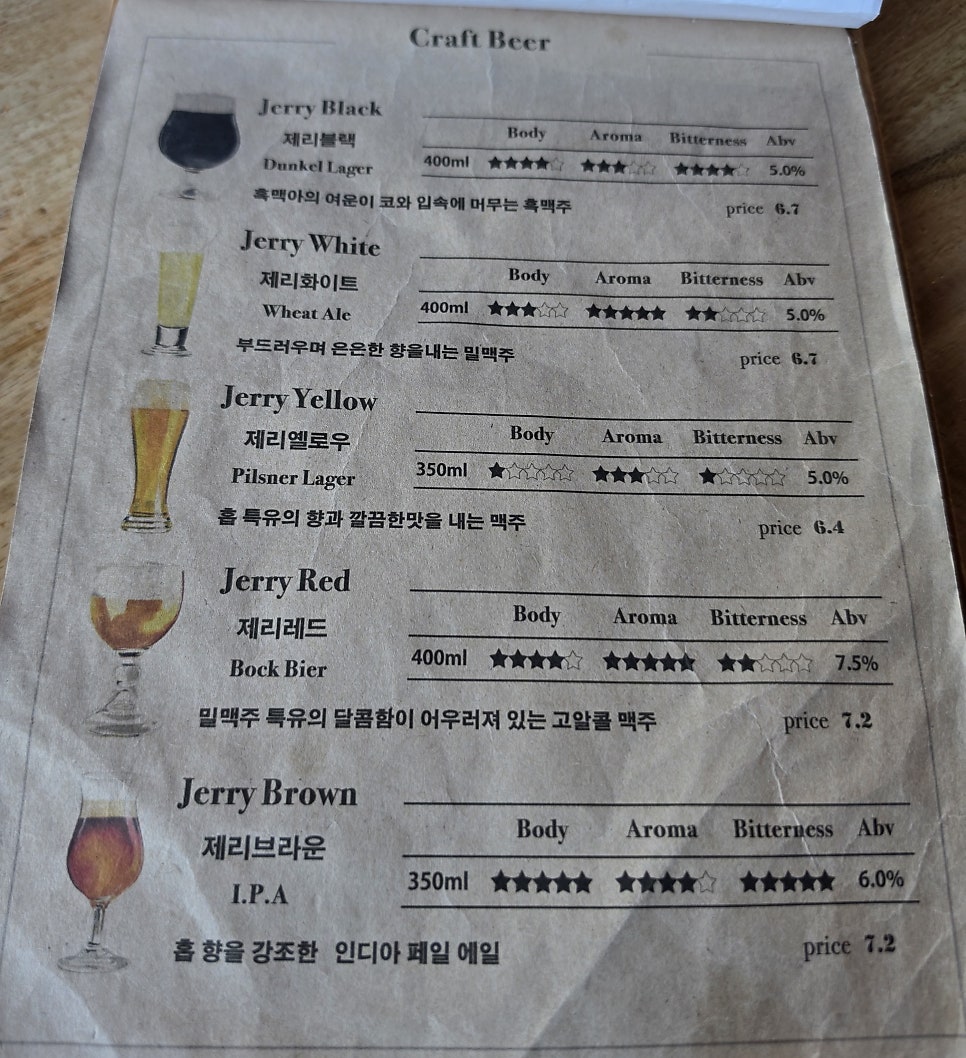 Craft Beer
Jerry Black
제리블랙
Dunkel Lager
Body Aroma Bitterness Abv
400ml ★★★★☆ ★★★☆☆ ★★★★☆ 5.0%
흑맥아의 여운이 코와 입속에 머무는 흑맥주
price 6.7
Jerry White
제리화이트
Wheat Ale
Body Aroma Bitterness Abv
400ml ★★★☆☆ ★★★★★ ★★☆☆☆ 5.0%
부드러우며 은은한 향을내는 밀맥주
price 6.7
Jerry Yellow
제리옐로우
Pilsner Lager
Body Aroma Bitterness Abv
350ml ★☆☆☆☆ ★★★☆☆ ★☆☆☆☆ 5.0%
홉 특유의 향과 깔끔한맛을 내는 맥주
price 6.4
Jerry Red
제리레드
Bock Bier
Body Aroma Bitterness Abv
400ml ★★★★☆ ★★★★★ ★★☆☆☆ 7.5%
밀맥주 특유의 달콤함이 어우러져 있는 고알콜 맥주
price 7.2
Jerry Brown
제리브라운
I.P.A
Body Aroma Bitterness Abv
350ml ★★★★★ ★★★★☆ ★★★★★ 6.0%
홉 향을 강조한 인디아 페일 에일
price 7.2